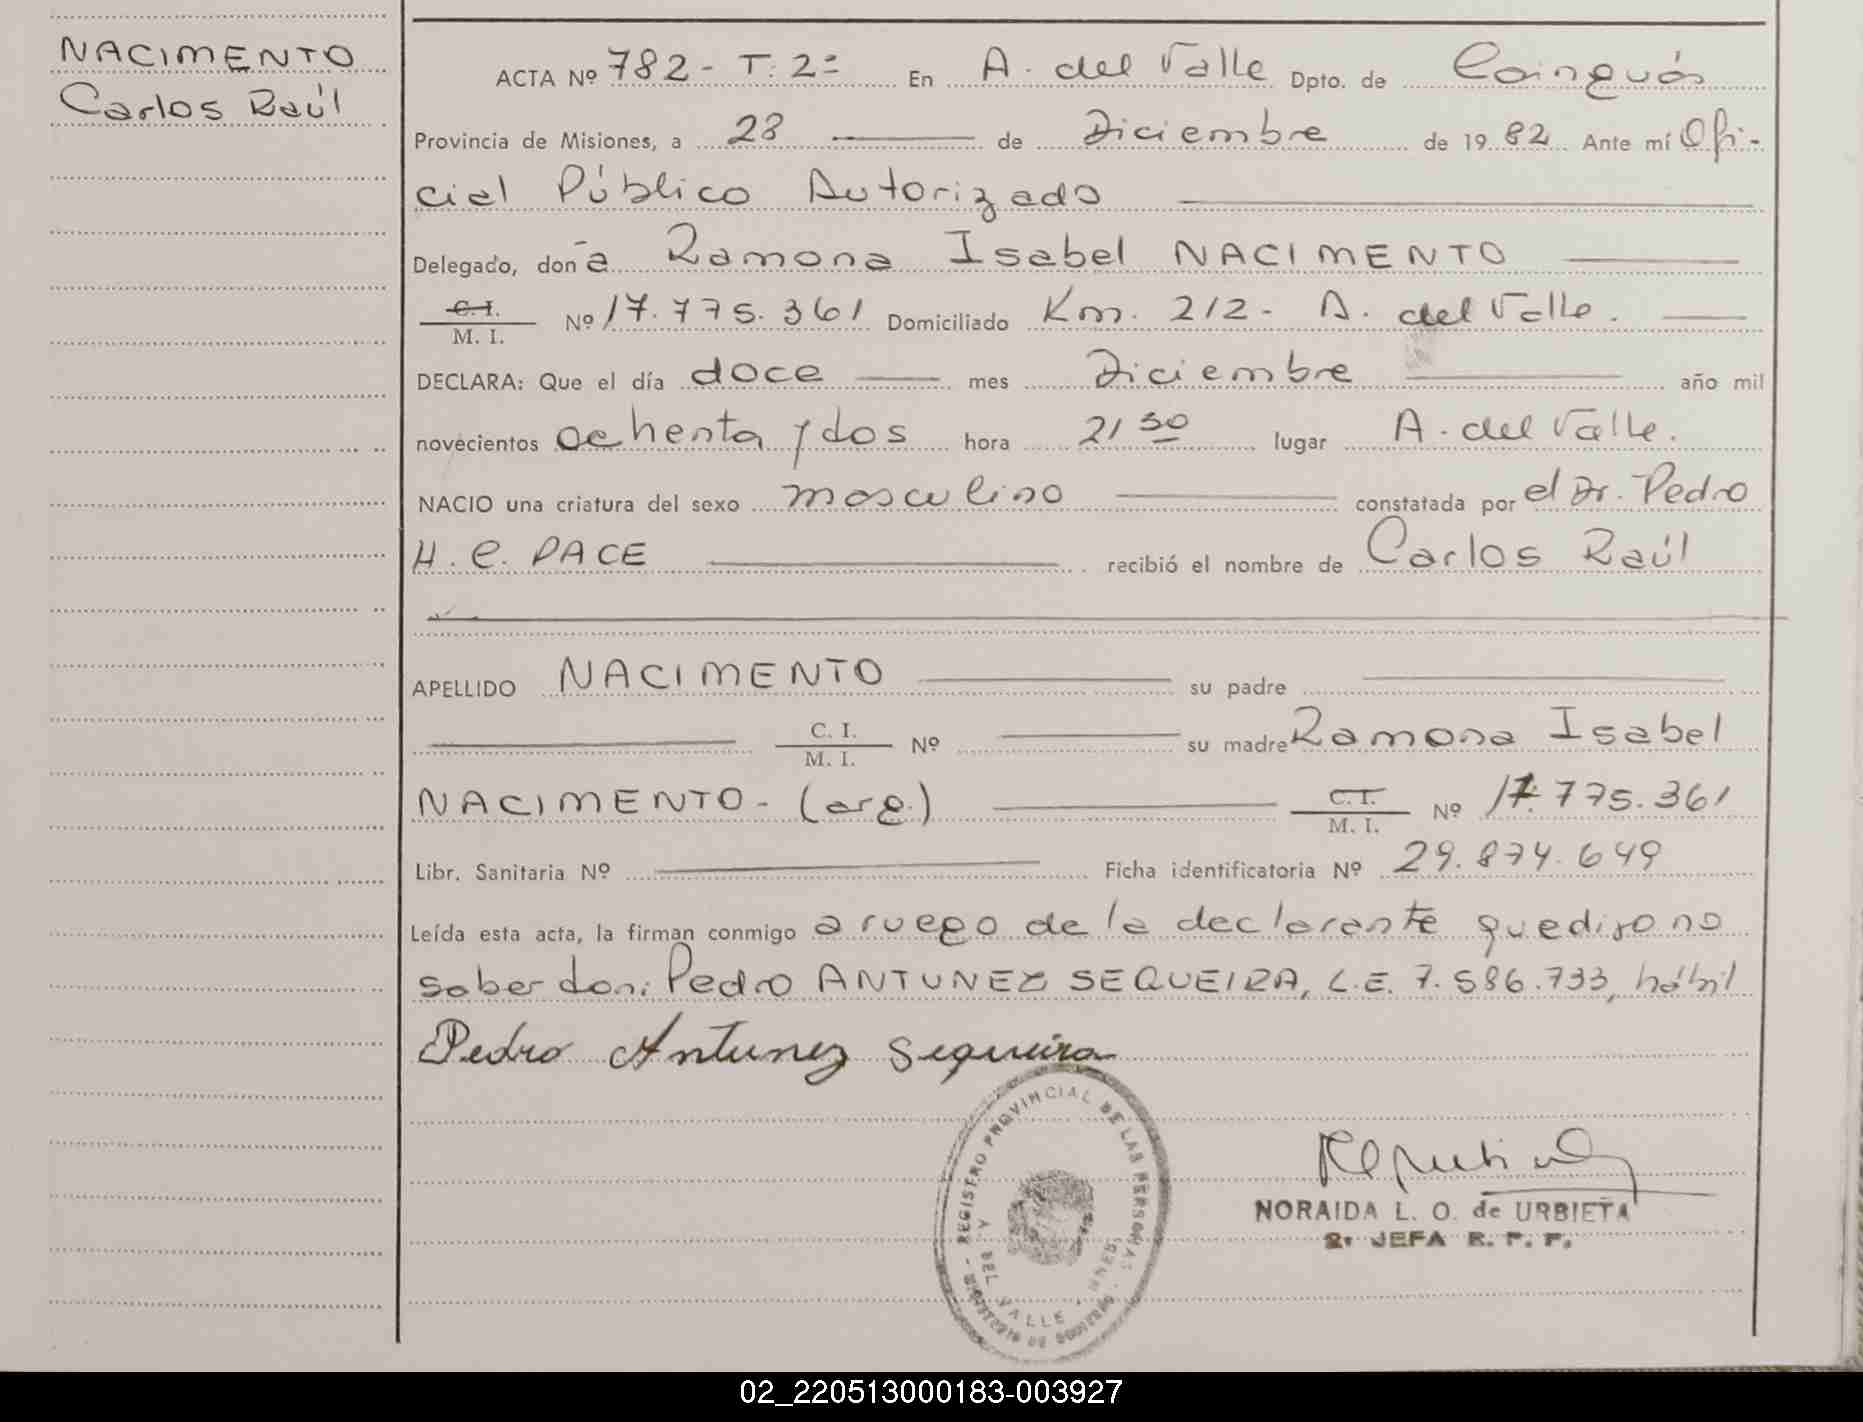 NACIMENTO
Carlos Raúl
ACTA Nº 782 - T: 2º En A. del Valle Dpto. de Cainguás
Provincia de Misiones, a 23 de Diciembre de 1982 Ante mí Ofi-
cial Público Autorizado
Delegado, don a Ramona Isabel NACIMENTO
C. I. / M. I. Nº 17.775.361 Domiciliado Km. 212 - A. del Valle.
DECLARA: Que el día doce mes Diciembre año mil
novecientos ochenta y dos hora 21 30 lugar A. del Valle.
NACIO una criatura del sexo masculino constatada por el Dr. Pedro
H. C. PACE recibió el nombre de Carlos Raúl
APELLIDO NACIMENTO su padre
C. I. / M. I. Nº su madre Ramona Isabel
NACIMENTO - (arg.) C. I. / M. I. Nº 17.775.361
Libr. Sanitaria Nº Ficha identificatoria Nº 29.874.649
Leída esta acta, la firman conmigo a ruego de la declarante que dijo no
saber don: Pedro ANTUNEZ SEQUEIRA, L.E. 7.586.733, hábil
Pedro Antunez Sequeira
REGISTRO PROVINCIAL DE LAS PERSONAS
DEL VALLE
NORAIDA L. O. de URBIETA
2ª JEFA R. P. P.
02_220513000183-003927